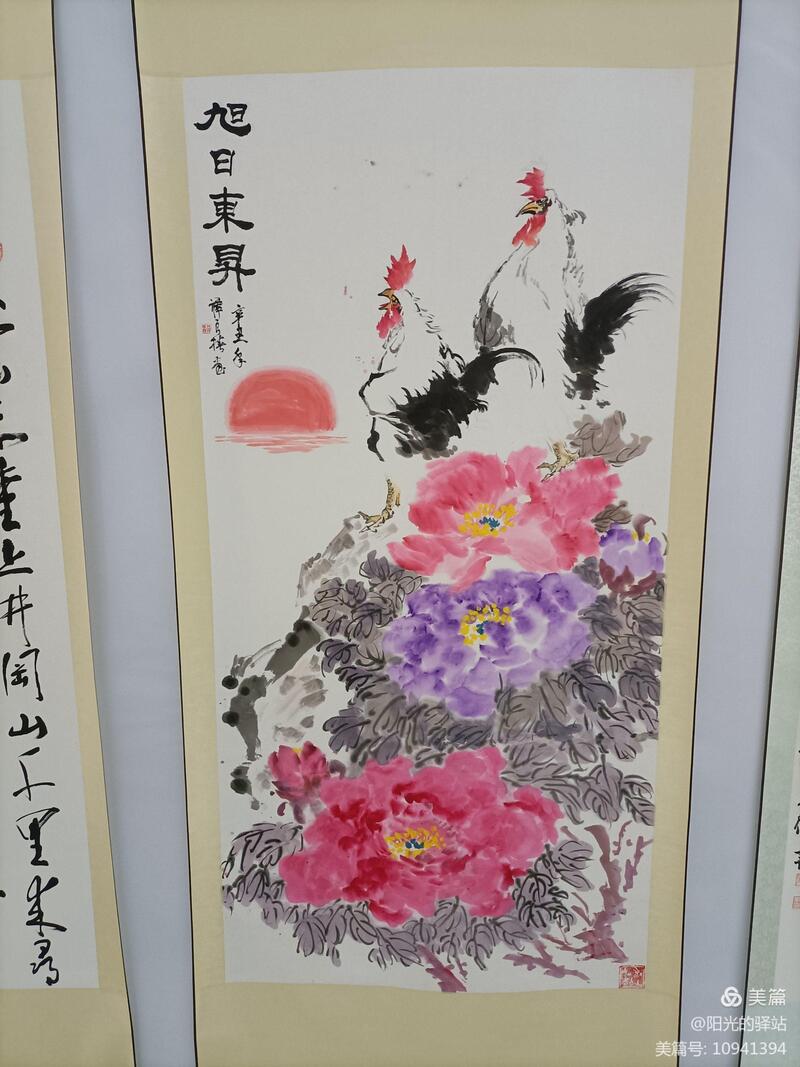 重上井岡山千里来尋
旭日東昇
辛丑年
美篇
@阳光的驿站
美篇号: 10941394